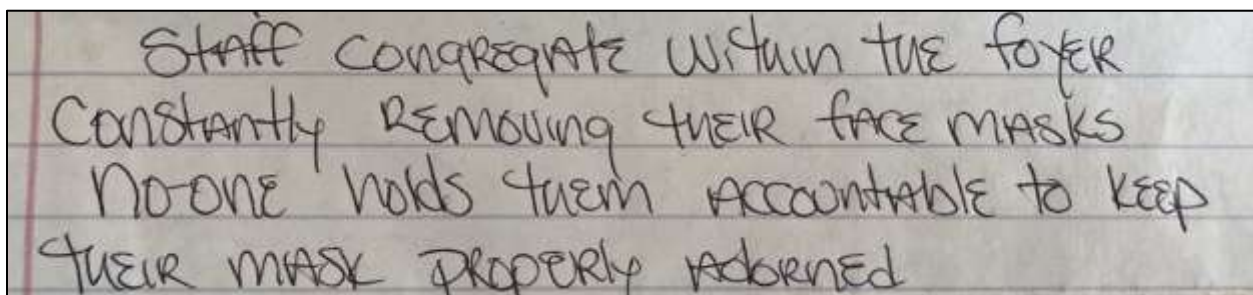 Staff congregate within the foyer
Constantly Removing their face masks
No-one holds them accountable to keep
their mask properly adorned